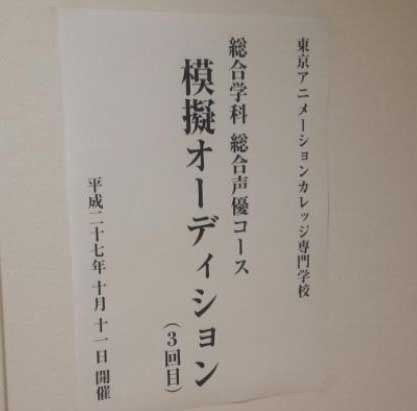 東京アニメーションカレッジ専門学校
総合学科 総合声優コース
模擬オーディション
(3回目)
平成二十七年十月十一日 開催